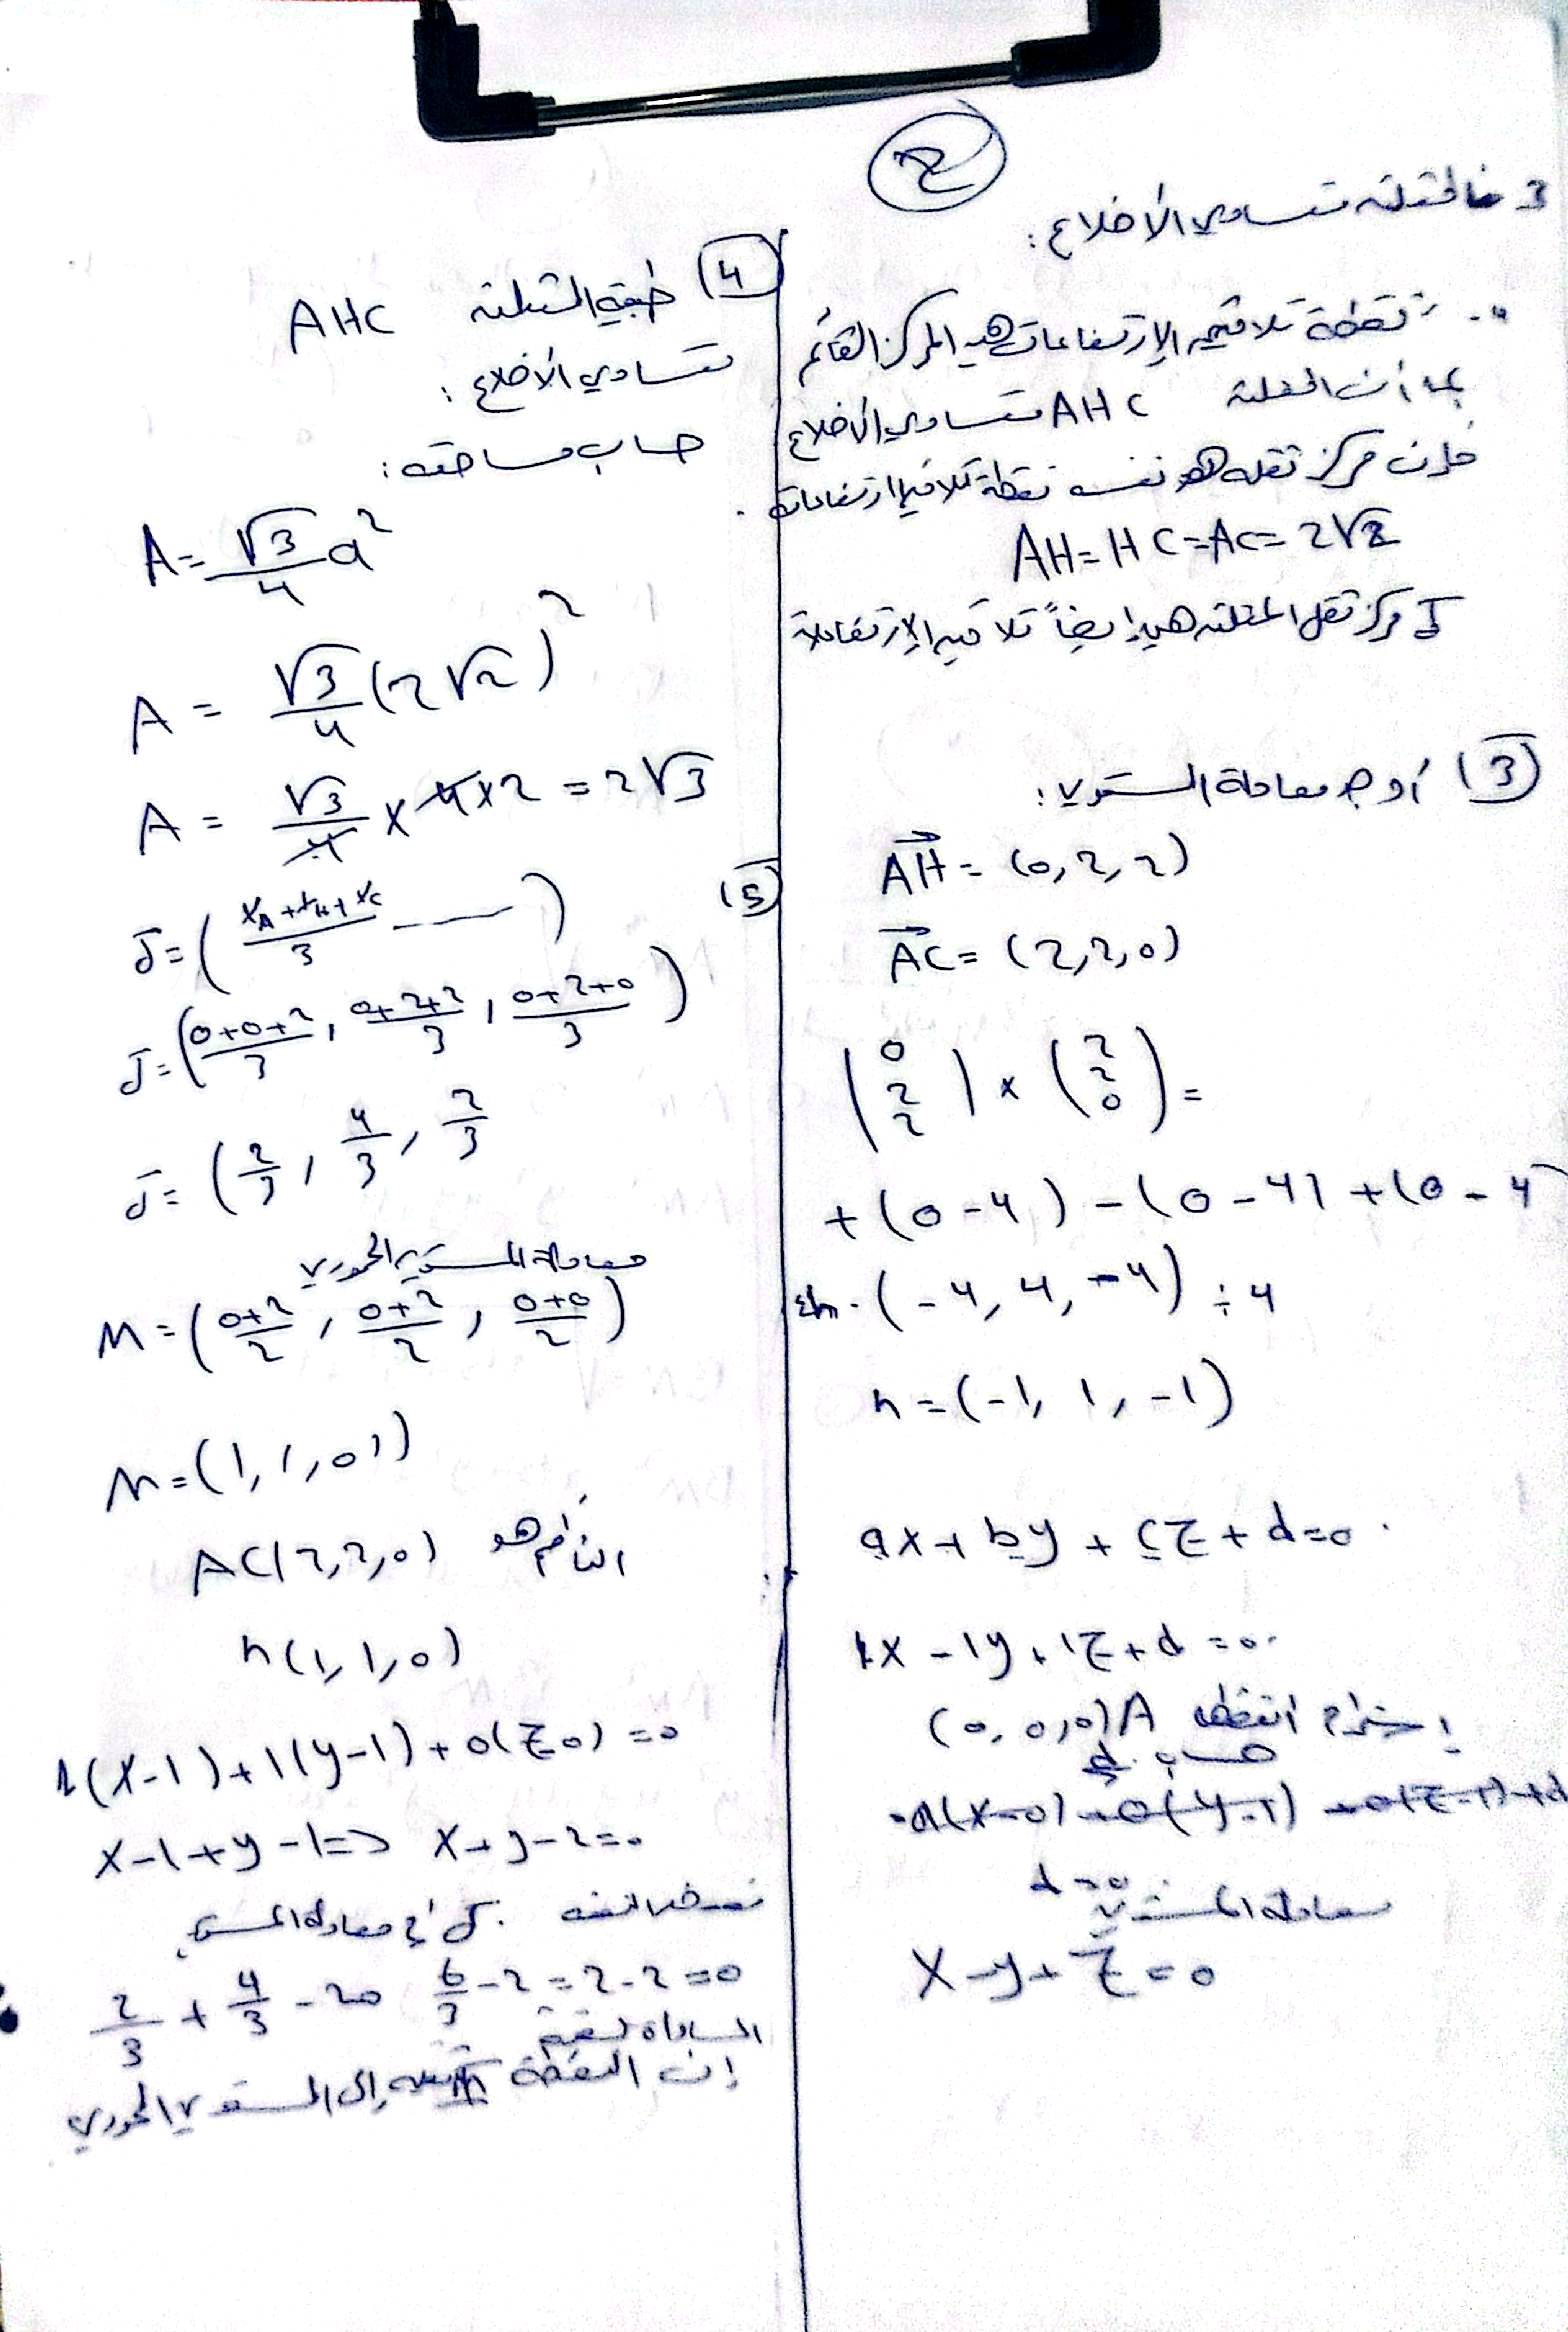 2
3 فالمثلث متساوي الأضلاع :
نقطة تلاقي الإرتفاعات هي المركز القائم
بما أن المثلث AHC متساوي الأضلاع
فإن مركز ثقله هو نفسه نقطة تلاقي ارتفاعاته .
AH = HC = AC = 2√2
مركز ثقل المثلث هي إيضاً تلاقي الإرتفاعات
3) أوجد معادلة المستوي :
AH = (0, 2, 2)
AC = (2, 2, 0)
(0 2 2) x (2 2 0) =
+(0-4) -(0-4) +(0-4
(-4, 4, -4) ÷ 4
n = (-1, 1, -1)
ax + by + cz + d = 0
1x - 1y + 1z + d = 0
إستخدام النقطة A (0, 0, 0)
حساب d
d = 0
معادلة المستوي
x - y + z = 0
4) طبيعة المثلث AHC
متساوي الأضلاع :
حساب مساحته :
A = √3/4 a²
A = √3/4 (2√2)²
A = √3/4 x 4x2 = 2√3
5)
J = (xA + xH + xC / 3 ——)
J = (0+0+2/3, 0+2+2/3, 0+2+0/3)
J = (2/3, 4/3, 2/3
معادلة المستوي المحوري
M = (0+2/2, 0+2/2, 0+0/2)
M = (1, 1, 0)
الناظم هو AC(2, 2, 0)
n(1, 1, 0)
1(x-1) + 1(y-1) + 0(z-0) = 0
x-1+y-1 => x+y-2=0
نعوض النقطة في معادلة المستوي
2/3 + 4/3 - 2 = 0 6/3 - 2 = 2-2 = 0
المساواة محققة
إن النقطة تنتمي إلى المستوي المحوري